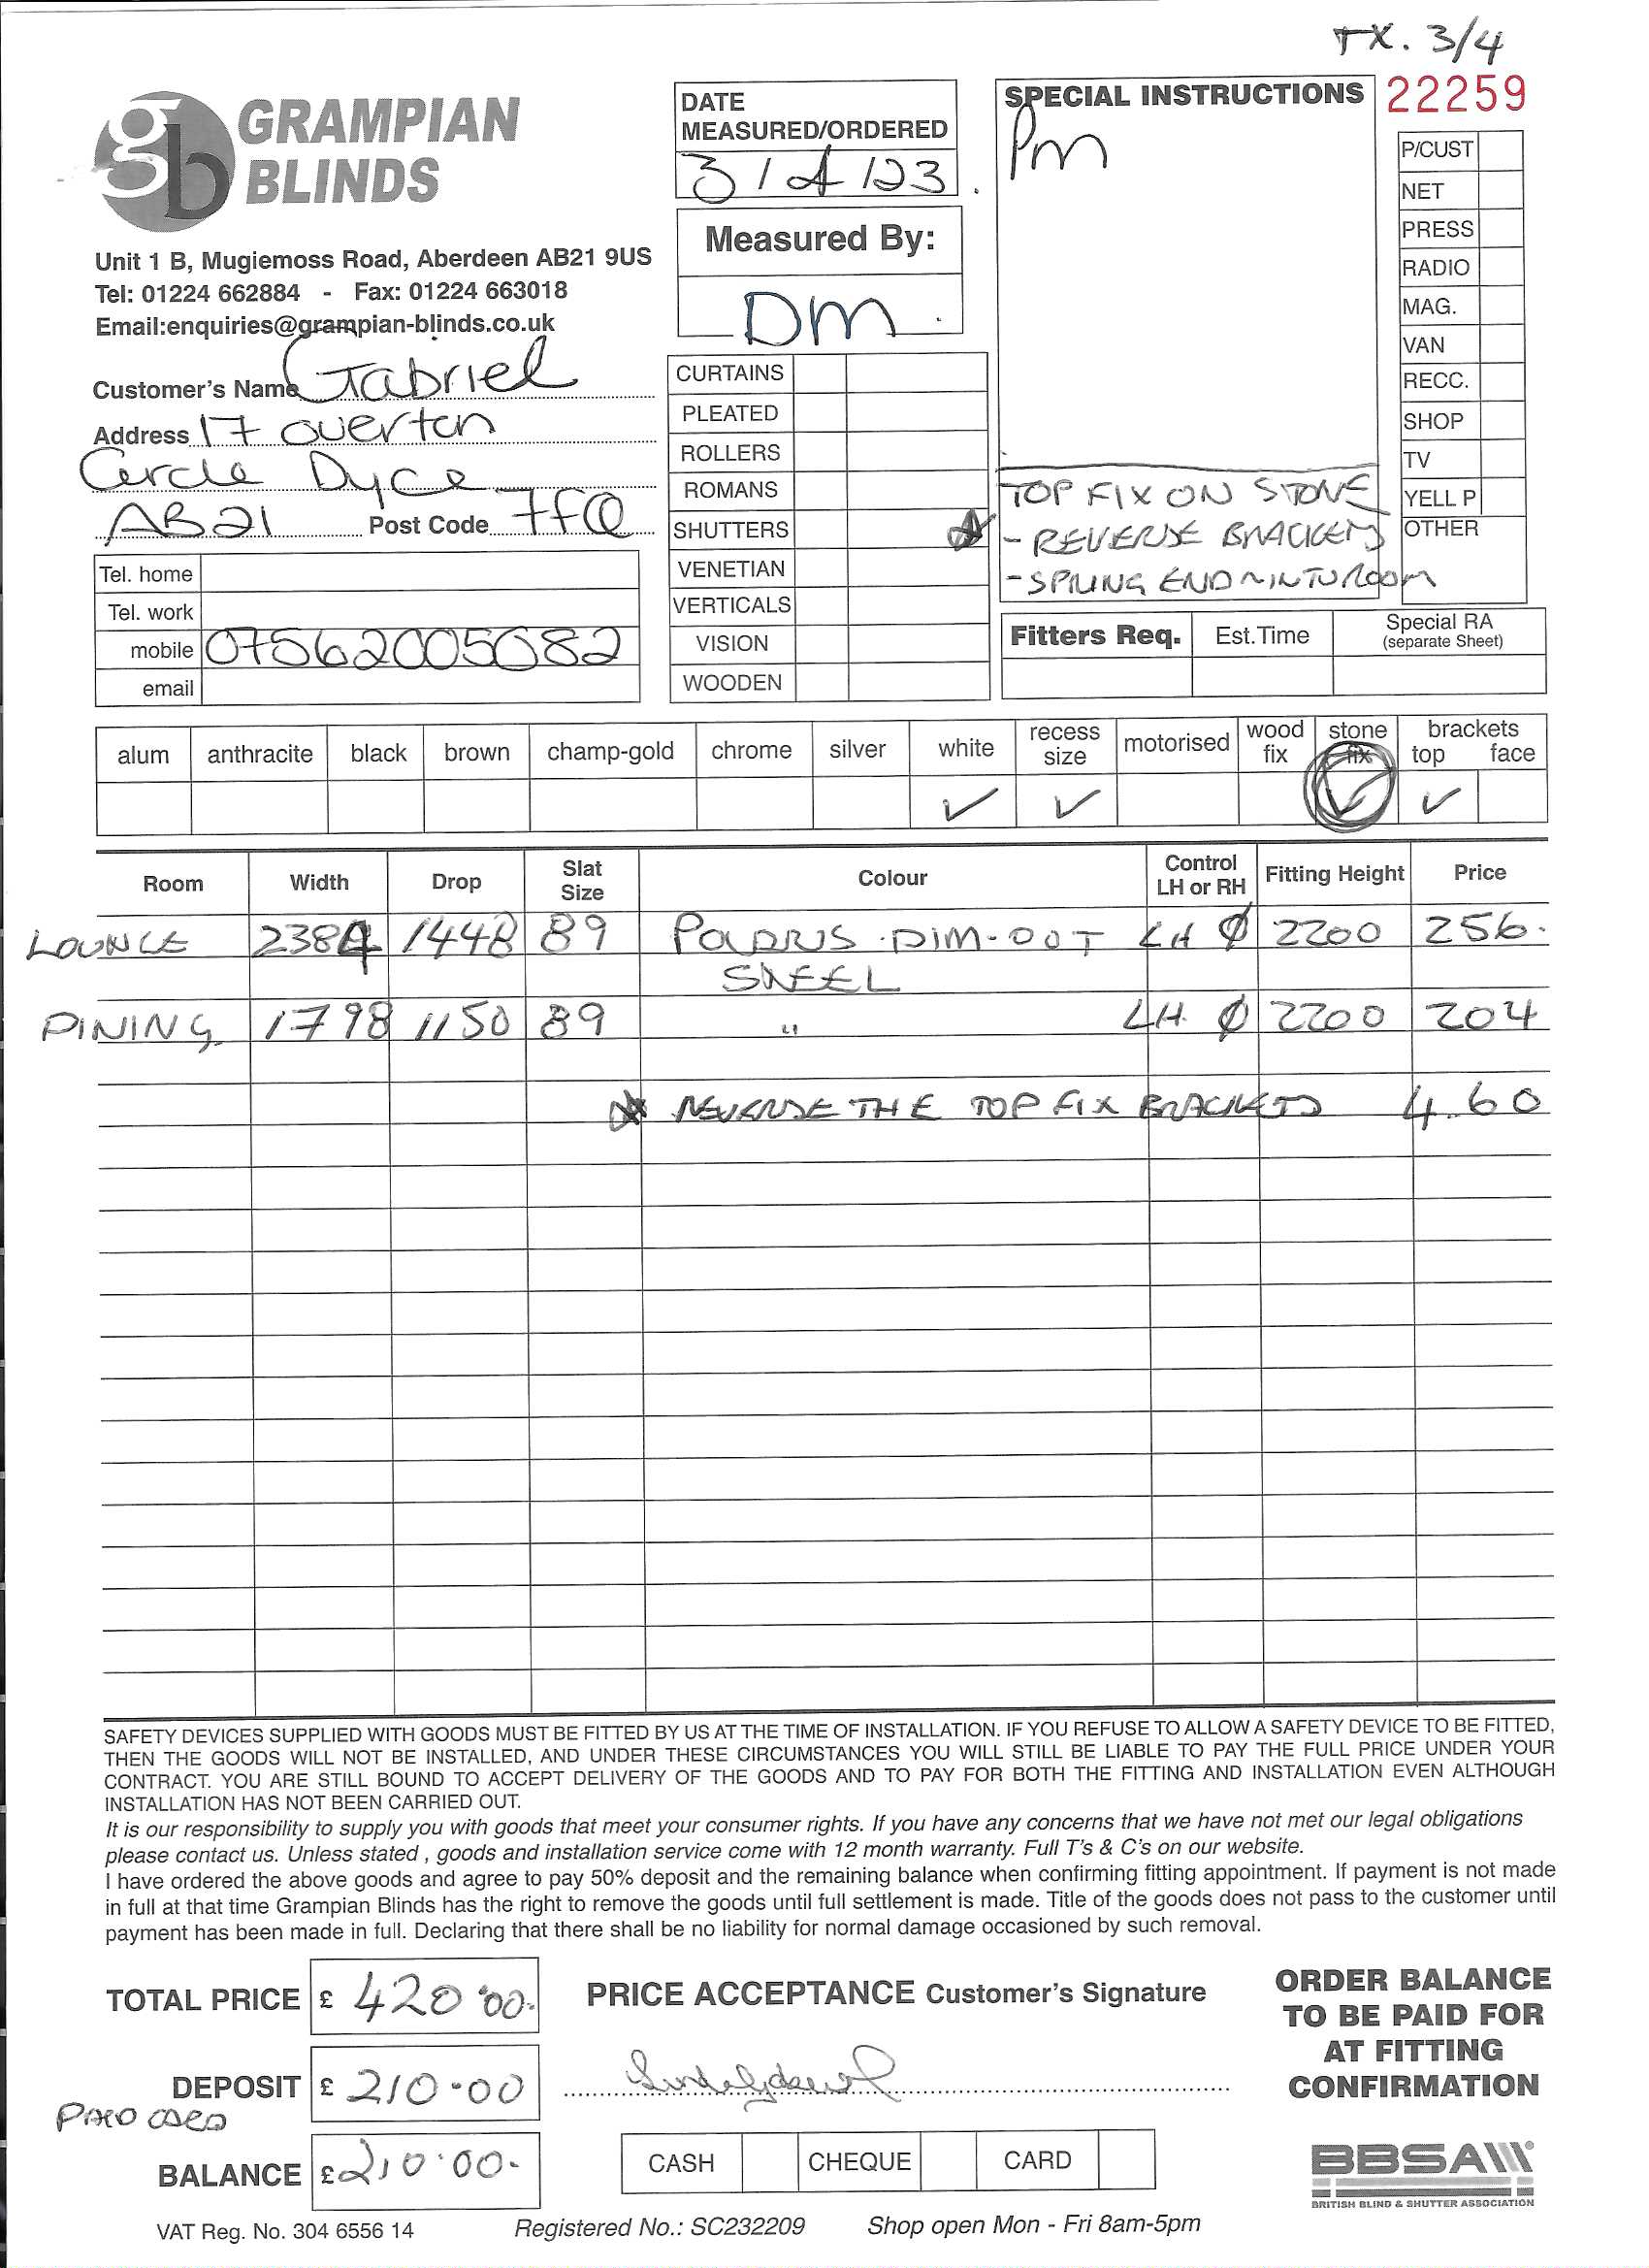 TX. 3/4
GRAMPIAN
BLINDS
Unit 1 B, Mugiemoss Road, Aberdeen AB21 9US
Tel: 01224 662884 - Fax: 01224 663018
Email:enquiries@grampian-blinds.co.uk
Customer's Name Gabriel
Address 17 overton
Cercle Dyce
AB21 Post Code 7FQ
Tel. home
Tel. work
mobile 07562005082
email
DATE
MEASURED/ORDERED
3/4/23.
Measured By:
DM.
CURTAINS
PLEATED
ROLLERS
ROMANS
SHUTTERS
VENETIAN
VERTICALS
VISION
WOODEN
SPECIAL INSTRUCTIONS
Pm
TOP FIX ON STONE
- REVERSE BRACKETS
- SPRING END MINTUROOM
22259
P/CUST
NET
PRESS
RADIO
MAG.
VAN
RECC.
SHOP
TV
YELL P
OTHER
Fitters Req. Est.Time Special RA
(separate Sheet)
alum anthracite black brown champ-gold chrome silver white recess size motorised wood fix stone fix brackets top face
✓ ✓ ✓ ✓
Room Width Drop Slat Size Colour Control LH or RH Fitting Height Price
LOUNGE 2384 1448 89 POLARIS DIM-OUT LH 2200 256.
STEEL
DINING 1798 1150 89 " LH 2200 204
REVERSE THE TOP FIX BRACKETS 4.60
SAFETY DEVICES SUPPLIED WITH GOODS MUST BE FITTED BY US AT THE TIME OF INSTALLATION. IF YOU REFUSE TO ALLOW A SAFETY DEVICE TO BE FITTED,
THEN THE GOODS WILL NOT BE INSTALLED, AND UNDER THESE CIRCUMSTANCES YOU WILL STILL BE LIABLE TO PAY THE FULL PRICE UNDER YOUR
CONTRACT. YOU ARE STILL BOUND TO ACCEPT DELIVERY OF THE GOODS AND TO PAY FOR BOTH THE FITTING AND INSTALLATION EVEN ALTHOUGH
INSTALLATION HAS NOT BEEN CARRIED OUT.
It is our responsibility to supply you with goods that meet your consumer rights. If you have any concerns that we have not met our legal obligations
please contact us. Unless stated , goods and installation service come with 12 month warranty. Full T's & C's on our website.
I have ordered the above goods and agree to pay 50% deposit and the remaining balance when confirming fitting appointment. If payment is not made
in full at that time Grampian Blinds has the right to remove the goods until full settlement is made. Title of the goods does not pass to the customer until
payment has been made in full. Declaring that there shall be no liability for normal damage occasioned by such removal.
TOTAL PRICE £ 420.00.
DEPOSIT £ 210.00
PAID CARD
BALANCE £ 210.00.
PRICE ACCEPTANCE Customer's Signature
CASH CHEQUE CARD
ORDER BALANCE
TO BE PAID FOR
AT FITTING
CONFIRMATION
BBSA
BRITISH BLIND & SHUTTER ASSOCIATION
VAT Reg. No. 304 6556 14 Registered No.: SC232209 Shop open Mon - Fri 8am-5pm